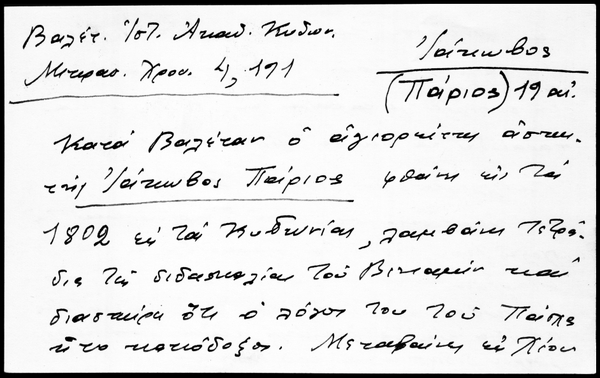 Βαλέτ. Ἱστ. Ἀκαδ. Κυδων.
Μικρασ. Χρον. 4, 191
Ἰάκωβος
(Πάριος) 19 αἰ.
Κατά Βαλέταν ὁ ἁγιορείτης ἀσκη-
τής Ἰάκωβος Πάριος φθάνει εἰς τά
1802 εἰς τάς Κυδωνίας, λαμβάνει τετρά-
δια τῆς διδασκαλίας τοῦ Βενιαμίν καί
διασπείρει ὅτι ὁ λόγος του τοῦ
ἦτο κακόδοξος. Μεταβαίνει εἰς Χίον